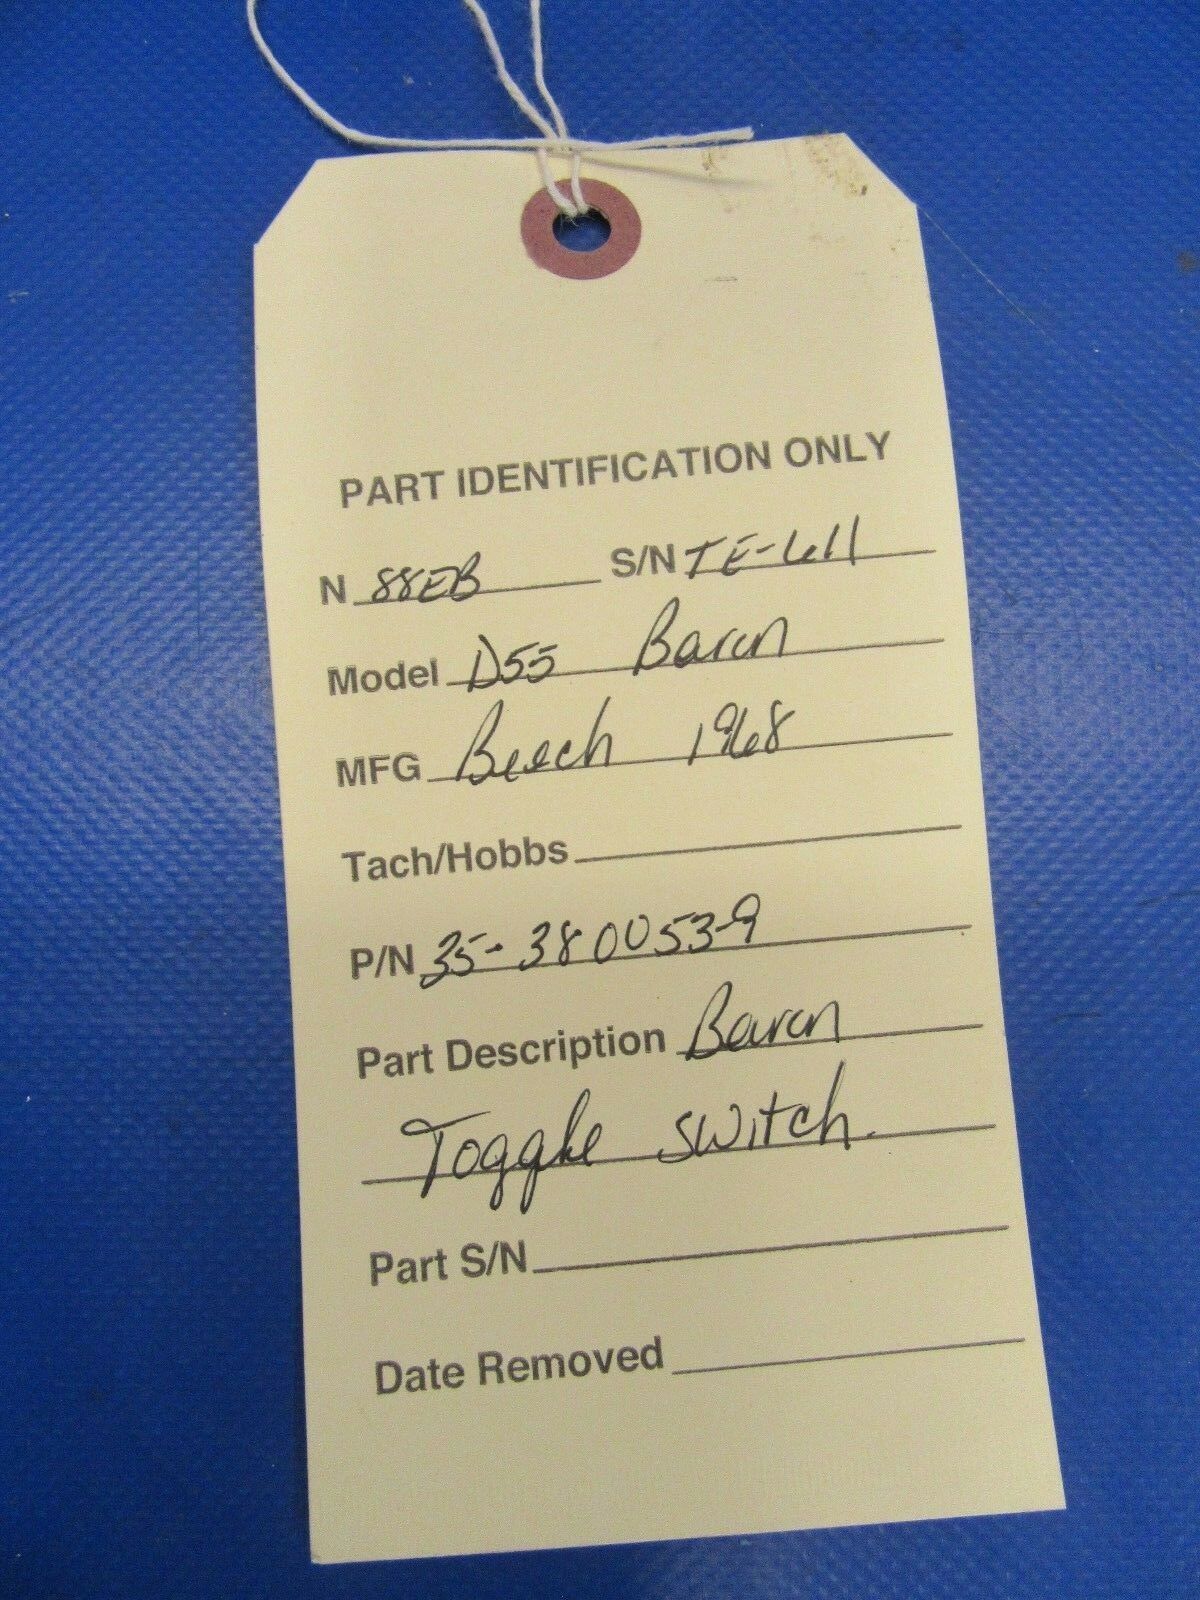 PART IDENTIFICATION ONLY
N 88EB S/N TE-611
Model D55 Baron
MFG Beech 1968
Tach/Hobbs
P/N 35-380053-9
Part Description Baron
Toggle switch.
Part S/N
Date Removed